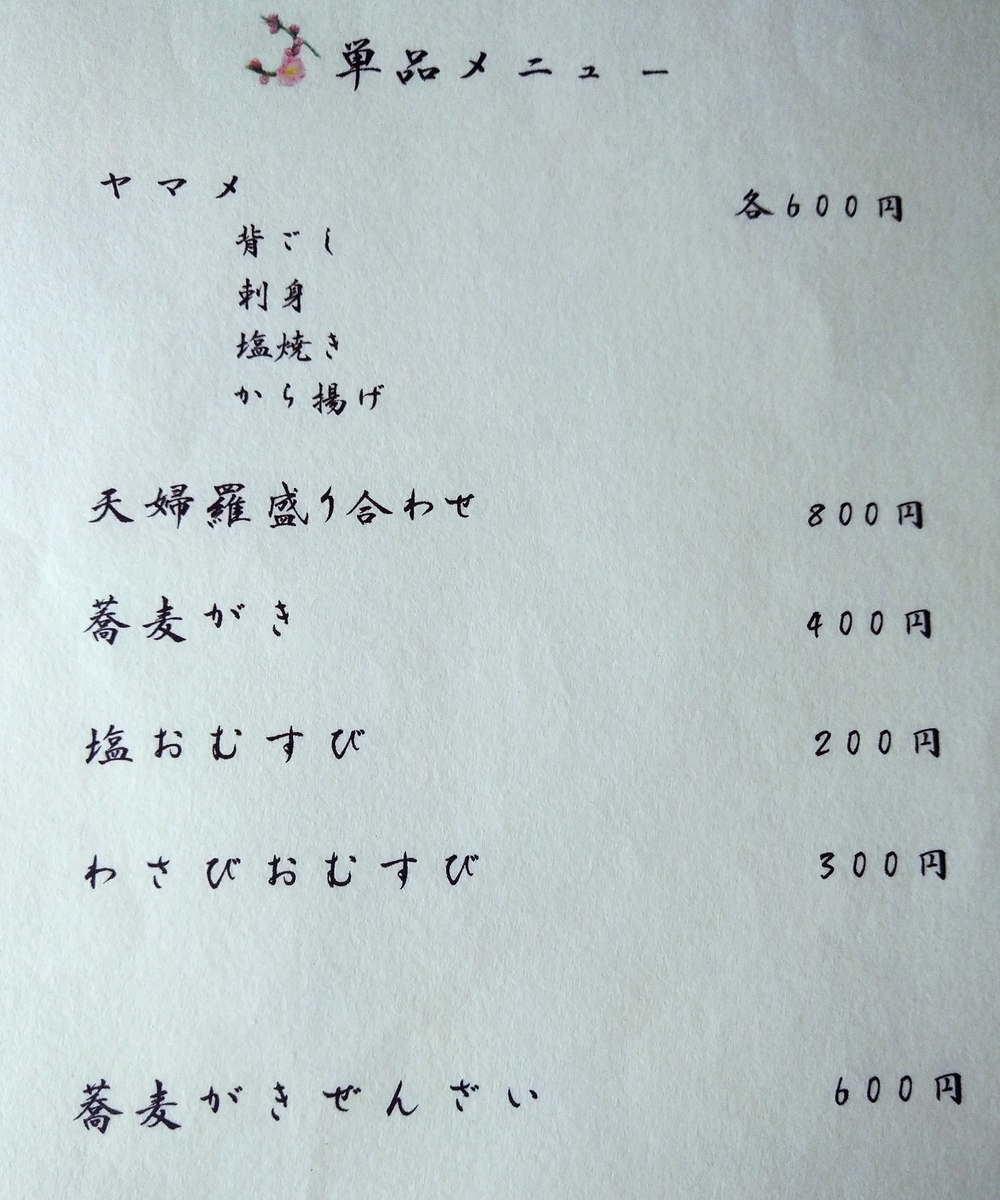 単品メニュー
ヤマメ 各600円
背ごし
刺身
塩焼き
から揚げ
天婦羅盛り合わせ 800円
蕎麦がき 400円
塩おむすび 200円
わさびおむすび 300円
蕎麦がきぜんざい 600円